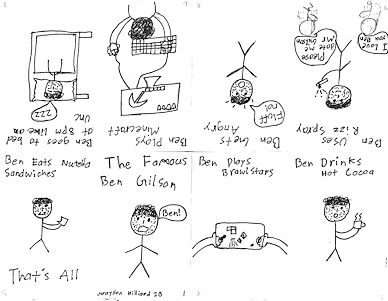 Ben Uses
Rizz Spray
Please
date me
Mr
Gilson
I love
you Ben
Ben Gets
Angry
Ben Plays
Minecraft
Ben goes to bed
at 8pm like an
Unc
zzz
Ben Eats Nutella
Sandwiches
The Famous
Ben Gilson
Ben Plays
Brawlstars
Ben Drinks
Hot Cocoa
Ben!
That's All
Grayson Hilliard 28